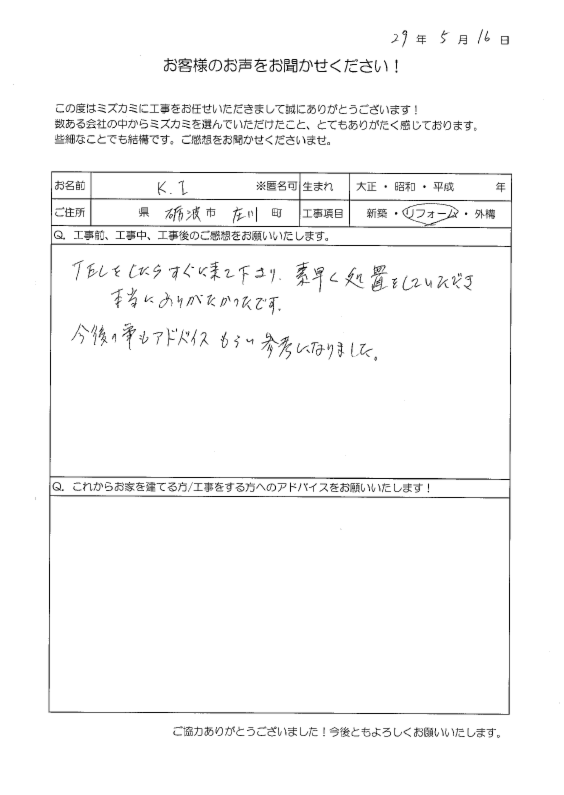 29 年 5 月 16 日
お客様のお声をお聞かせください！
この度はミズカミに工事をお任せいただきまして誠にありがとうございます！
数ある会社の中からミズカミを選んでいただけたこと、とてもありがたく感じております。
些細なことでも結構です。ご感想をお聞かせくださいませ。
お名前 K.I ※匿名可 生まれ 大正・昭和・平成 年
ご住所 県 砺波 市 庄川 町 工事項目 新築・リフォーム・外構
Q. 工事前、工事中、工事後のご感想をお願いいたします。
TELをしたらすぐに来て下さり、素早く処置をしていただき
本当にありがたかったです。
今後の事もアドバイスもらい参考になりました。
Q. これからお家を建てる方/工事をする方へのアドバイスをお願いいたします！
ご協力ありがとうございました！今後ともよろしくお願いいたします。